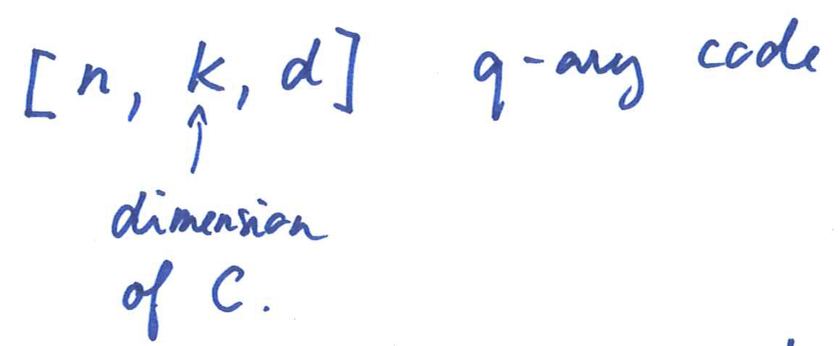 [n, k, d] q-ary code
↑
dimension
of C.